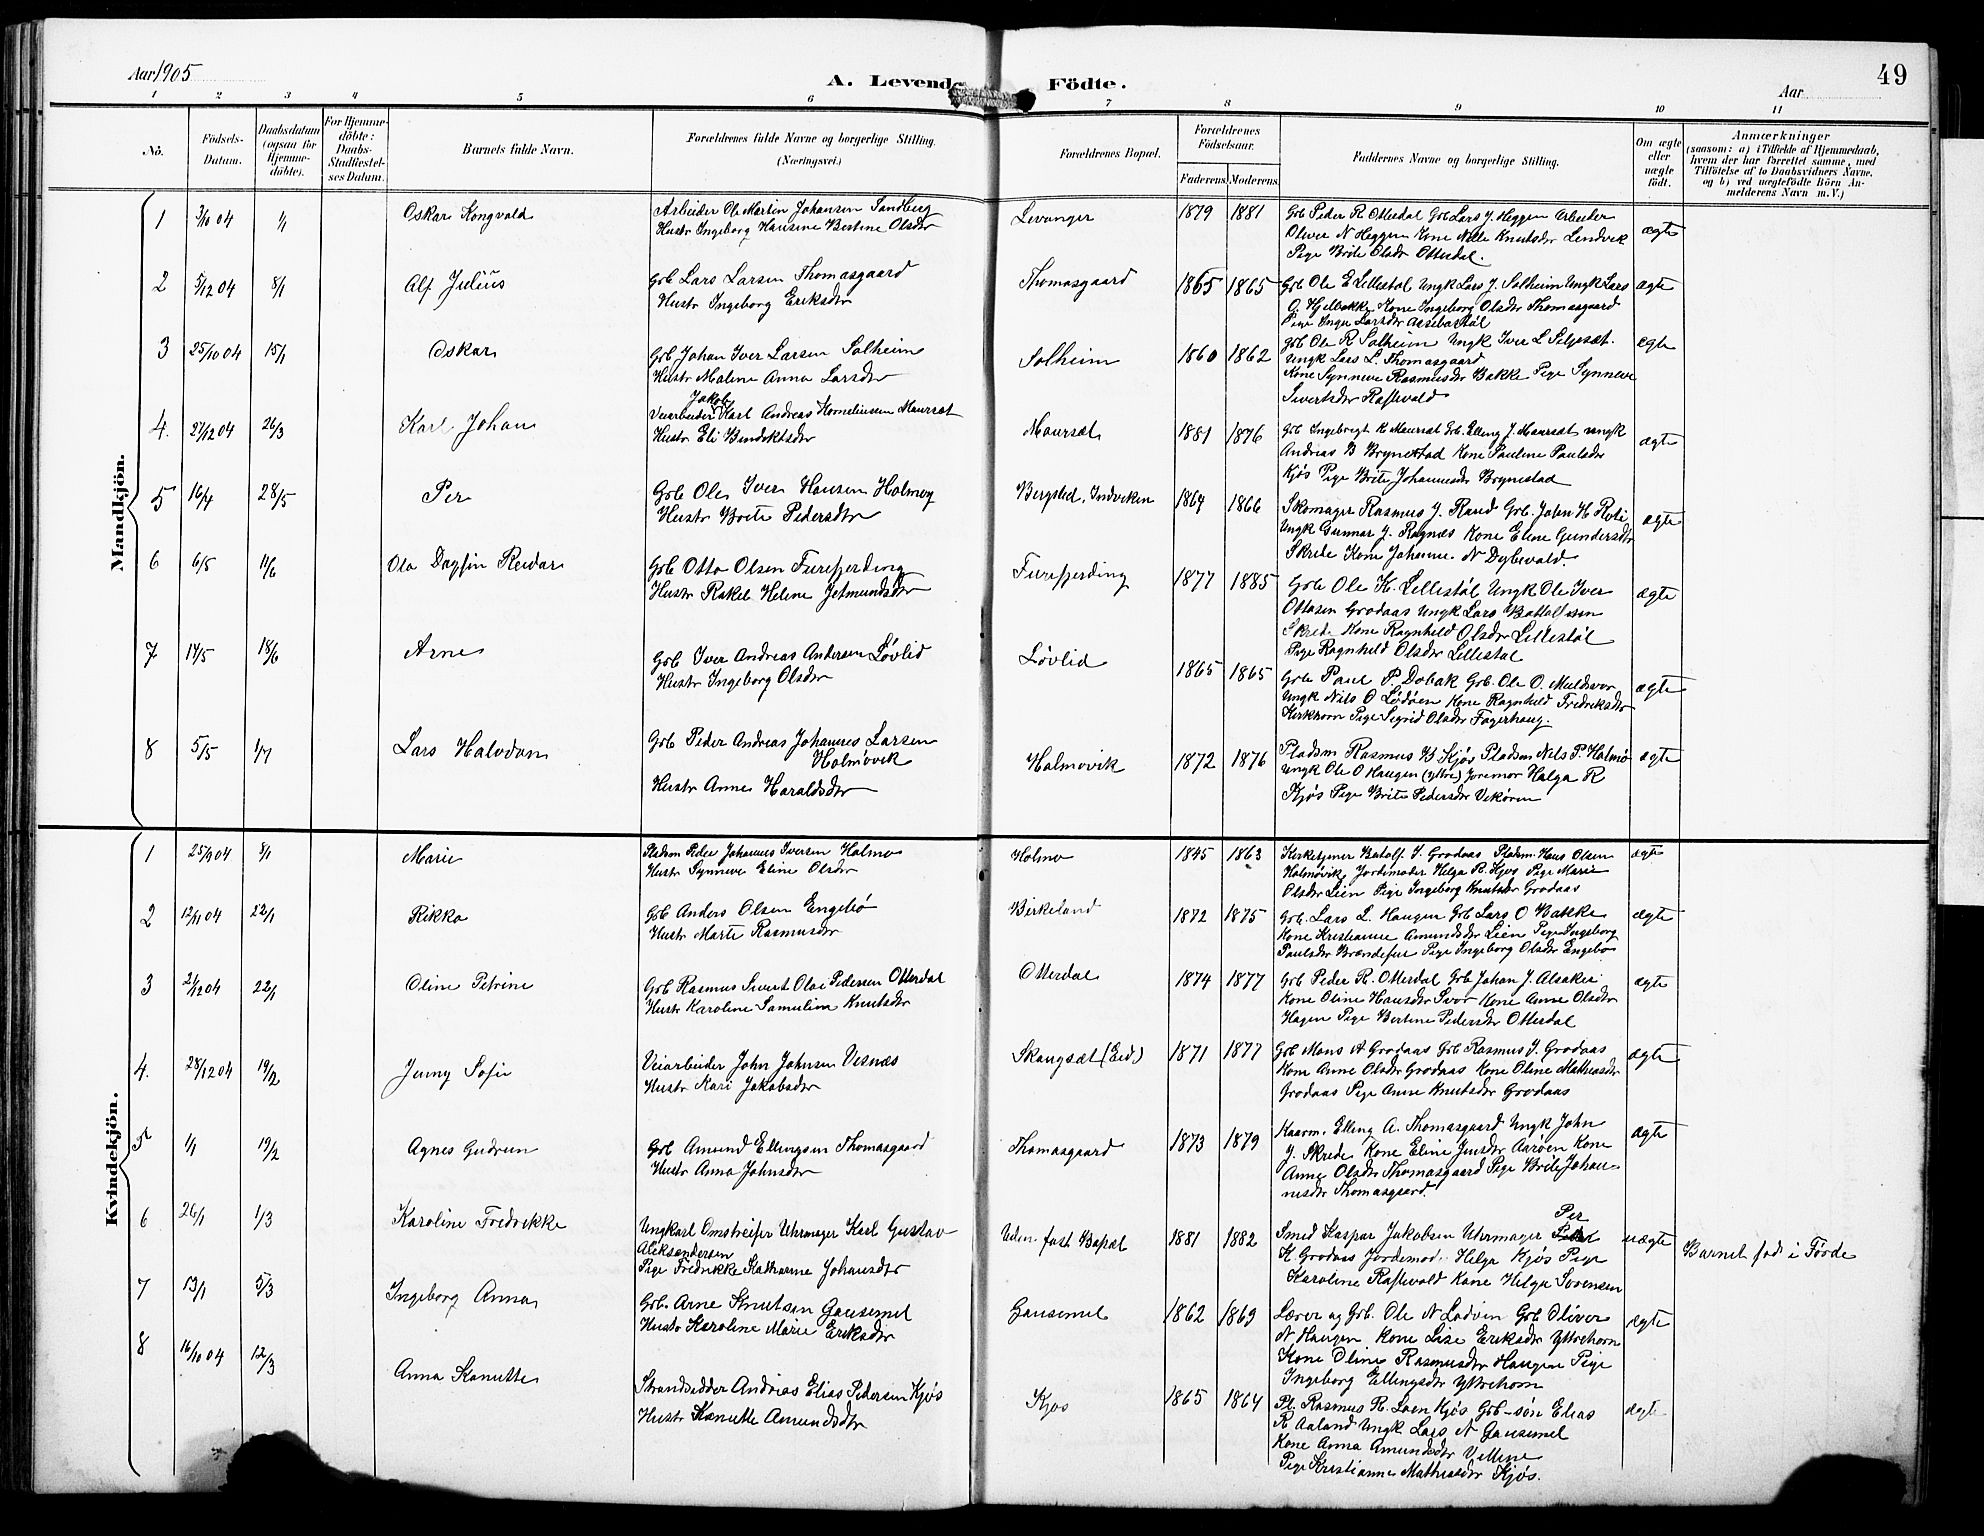 Aar 1905
A. Levende Födte.
49
Aar
1 2 3 4 5 6 7 8 9 10 11
No.
Födsels-Datum.
Daabsdatum (ogsaa for Hjemme-döbte).
For Hjemme-döbte: Daabs-Stadfæstel-ses Datum.
Barnets fulde Navn.
Forældrenes fulde Navne og borgerlige Stilling. (Næringsvei.)
Forældrenes Bopæl.
Forældrenes Födselsaar.
Faderens. Moderens.
Faddernes Navne og borgerlige Stilling.
Om ægte eller uægte födt.
Anmærkninger
(saasom: a) i Tilfælde af Hjemmedaab,
hvem der har forrettet samme, med
Tilföielse af to Daabsvidners Navne,
og b) ved uægtefödte Börn An-
melderens Navn m. V.)
Mandkjön.
1 3/10 04 1/1 Oskar Kongvald Arbeider Ole Martin Johansen Sandberg
Hustr Ingeborg Hansine Bertine Olsdtr
Levanger 1879 1881 Grb Peder R Otterdal Grb Lars J. Heggen Arbeider
Oliver N Heggen Kone Nille Knutsdtr Lendvik
Pige Brite Olsdtr Otterdal. ægte
2 5/12 04 8/1 Alf Julius Grb Lars Larsen Thomasgaard
Hustr Ingeborg Eriksdtr
Thomasgaard 1865 1865 Grb Ole E Lillestøl Ungk Lars J. Solheim Ungk Lars
O. Hjelbakke Kone Ingeborg Olsdtr Thomasgaard
Pige Inga Larsdtr Aasebøstøl ægte
3 25/10 04 15/1 Oskar Grb Johan Iver Larsen Solheim
Hustr Maline Anna Larsdtr
Solheim 1860 1862 Grb Ole R Solheim Ungk Iver L Seljeset.
Ungk Lars L. Thomasgaard
Kone Synneve Rasmusdtr Bakke Pige Synneve
Sivertsdtr Raftevold ægte
4. 27/12 04 26/3 Karl Johan Jakob
Veiarbeider Karl Andreas Korneliussen Maurset
Hustr Eli Bendiktsdtr
Maurset 1881 1876 Grb Ingebrigt R Maurset Grb. Elling J. Maurset ungk
Andrias B Brynestad Kone Pauline Paulsdtr
Kjøs Pige Brite Johannesdtr Brynestad ægte
5 16/4 28/5 Per Grb Ole Iver Hansen Holmøy
Hustr Brite Pedersdtr
Bergstad, Indviken 1864 1866 Skomager Rasmus J. Rand Grb. John H Roti
Ungk Gunnar J. Ragnæs Kone Eline Gundersdtr
Skrede Kone Johanne N Dybevald. ægte
6 6/5 11/6 Ola Dagfin Reidar Grb Otto Olsen Furefjerding
Hustr Rakel Helene Jetmundsdtr
Furefjerding 1877 1885 Grb Ole K. Lillestøl Ungk Ole Iver
Ottosen Grodaas Ungk Lars Battolfssen
Skrede Kone Ragnhild Olsdtr Lillestøl
Pige Ragnhild Olsdtr Lillestøl ægte
7 14/5 18/6 Arne Grb Iver Andreas Andersen Løvlid
Hustr Ingeborg Olsdtr
Løvlid 1865 1865 Grb Paul P. Dobak Grb. Ole O. Muldsvor
Ungk Nils O Lødøen Kone Ragnhild Fredriksdtr
Kirkhorn Pige Sigrid Olsdtr Fagerhaug. ægte
8 5/5 1/7 Lars Halvdan Grb Peder Andreas Johannes Larsen
Holmøvik
Hustr Anne Haraldsdtr
Holmøvik 1872 1876 Pladsm Rasmus B Kjøs Pladsm Nils P. Holmø
Ungk Ole O Haugen (ytre) Joremor Helga R
Kjøs Pige Brite Pedersdtr Vikøren ægte
Kvindekjön.
1 25/9 04 8/1 Marie Pladsm Peder Johannes Iversen Holmø
Hustr Synneve Eline Olsdtr
Holmø 1845 1863 Kirketjener Batolf I. Grodaas Pladsm. Hans Olsen
Holmøvik Jordmoder Helga R. Kjøs Pige Marie
Olsdtr Lien Pige Ingeborg Knutsdtr Grodaas ægte
2 12/11 04 22/1 Rikka Grb Anders Olsen Engebø
Hustr Marte Rasmusdtr
Birkeland 1872 1875 Grb. Lars L. Haugen Grb Lars O Bakke
Kone Kristianne Amundsdtr Lien Pige Ingeborg
Paulsdtr Brændefur Pige Ingeborg Olsdtr Engebø ægte
3 21/12 04 22/1 Oline Petrine Grb Rasmus Sivert Olai Pedersen Otterdal
Hustr Karoline Samuline Knutsdtr
Otterdal 1874 1877 Grb Peder R. Otterdal Grb Johan J. Alsaker
Kone Oline Hansdtr Svor Kone Anne Olsdtr
Hagen Pige Bertine Pedersdtr Otterdal ægte
4. 28/12 04 19/2 Jenny Sofie Veiarbeider John Johnsen Vesnæs
Hustr Kari Jakobsdtr
Skaugsæt (Eid) 1871 1877 Grb Mons A Grodaas Grb Rasmus J. Grodaas
Kone Anne Olsdtr Grodaas Kone Oline Mathiasdtr
Grodaas Pige Anne Knutsdtr Grodaas ægte
5 1/1 19/2 Agnes Gudrun Grb Amund Ellingsen Thomasgaard
Hustr Anna Johnsdtr
Thomasgaard 1873 1879 Kaarm. Elling A. Thomasgaard Ungk John
J. Skrede Kone Eline Jensdtr Aarøen Kone
Anne Olsdtr Thomasgaard Pige Brite Johan-
nesdtr Thomasgaard. ægte
6 26/1 1/3 Karoline Fredrikke Ungkarl Omstreifer Uhrmager Karl Gustav
Aleksandersen
Pige Fredrikke Katharine Johansdtr
Uden fast Bopæl 1881 1882 Smed Kaspar Jakobsen Uhrmager Per
K. Grodaas Jordemod. Helga Kjøs Pige
Karoline Raftevold Kone Helga Sørensen uægte Barnet født i Førde
7 13/1 5/3 Ingeborg Anna Grb. Arne Knutsen Gausemel
Hustr Karoline Marie Eriksdtr
Gausemel 1862 1869 Lærer og Grb. Ole N Lødøen Grb Oliver
N Haugen Kone Lise Eriksdtr Yttrehorn
Kone Oline Rasmusdtr Haugen Pige
Ingeborg Ellingsdtr Yttrehorn ægte
8 16/10 04 12/3 Anna Kanutte Strandsidder Andrias Elias Pedersen Kjøs
Hustr Kanutte Amundsdtr
Kjøs 1865 1864 Pl. Rasmus R. Loen Kjøs Grb-søn Elias
R Aaland Ungk Lars N Gausemel
Kone Anna Amundsdtr Vellene
Pige Kristianne Mathiasdtr Kjøs. ægte